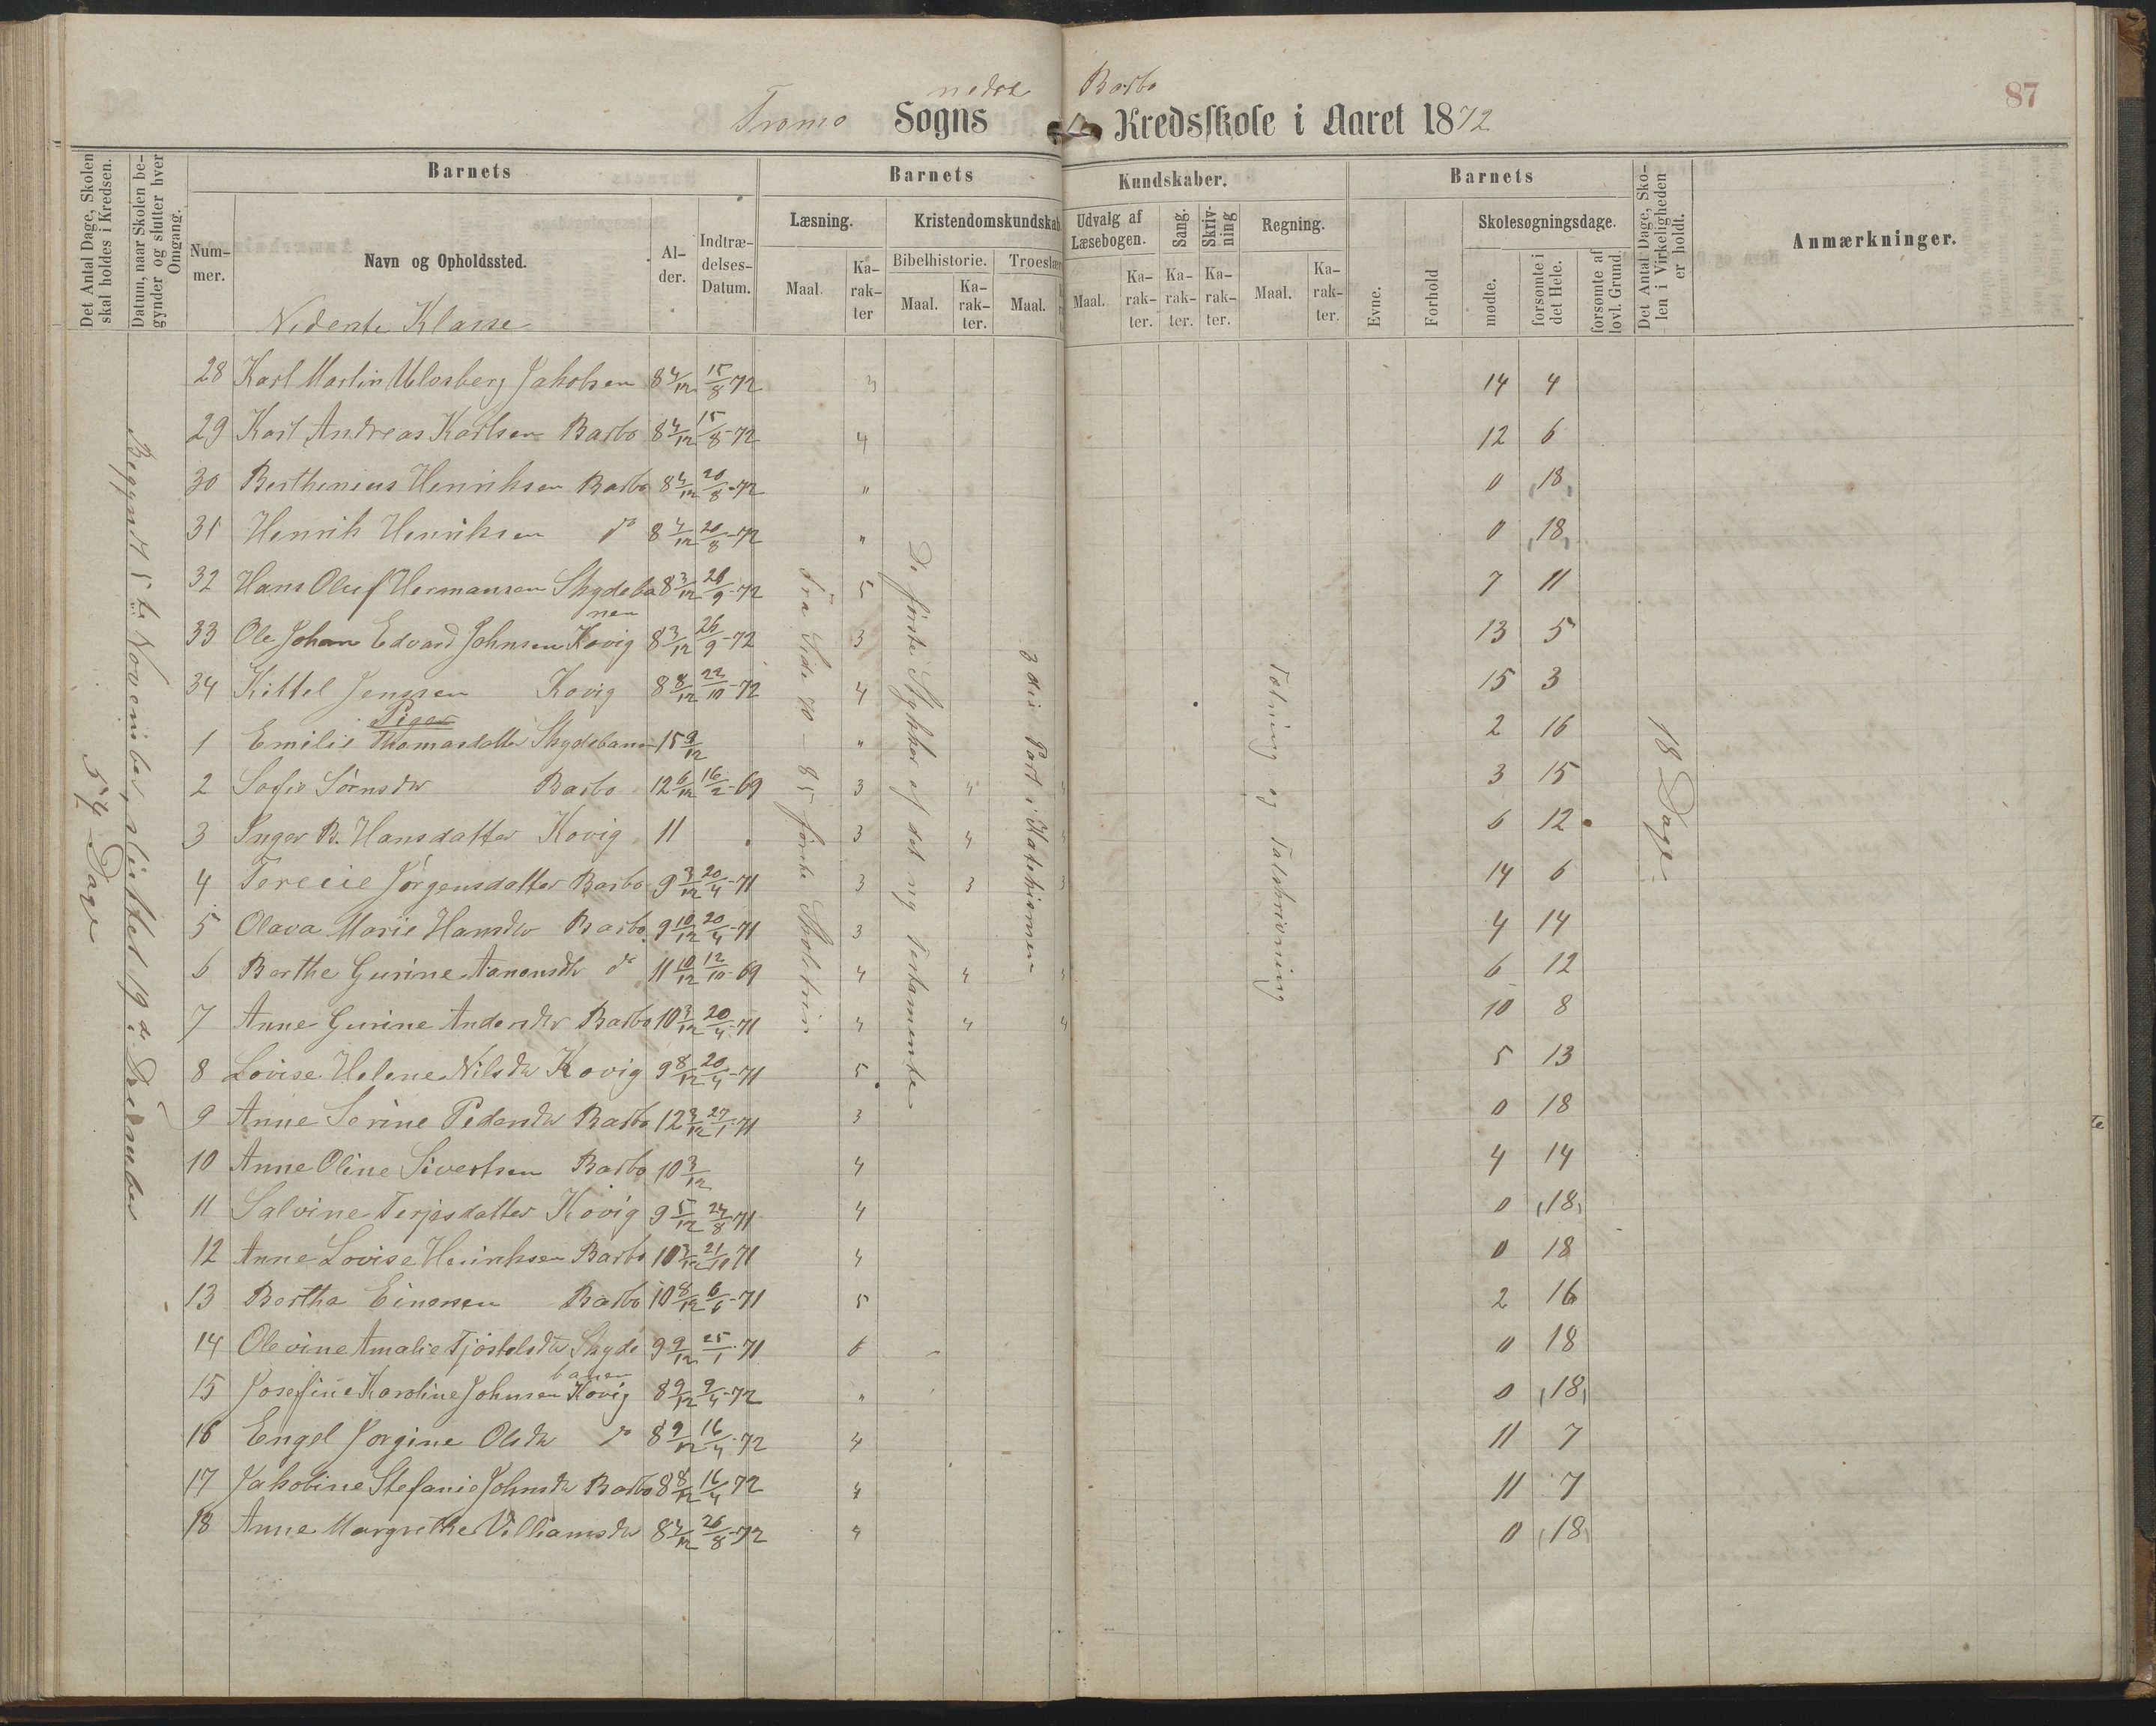 nedre Barbo
Tromø Sogns Kredsskole i Aaret 1872
87
Det Antal Dage, Skolen skal holdes i Kredsen.
Datum, naar Skolen begynder og slutter hver Omgang.
Barnets
Barnets
Kundskaber.
Barnets
Det Antal Dage, Skolen i Virkeligheden er holdt.
Anmærkninger.
Nummer.
Navn og Opholdssted.
Alder.
Indtrædelses-Datum.
Læsning.
Kristendomskundskab
Udvalg af Læsebogen.
Sang.
Skrivning
Regning.
Evne.
Forhold
Skolesøgningsdage.
Maal.
Karakter
Bibelhistorie.
Troeslær
Maal.
Karakter.
Maal.
Maal.
Karakter.
Karakter.
Karakter.
Maal.
Karakter.
mødte.
forsømte i det Hele.
forsømte af lovl. Grund.
Nederste Klasse
54 Dage
Begyndt 5te November, sluttet 19de December
Fra Side 70 – 85 første Skoletrin
De første Stykker af det ny Testamente
3die Part i Katekismen
Tælning og Talskrivning
18 Dage
28 Karl Martin Ulosberg Jakobsen 8 4/12 15/8-72 3 14 4
29 Karl Andreas Karlsen Barbo 8 4/12 15/8-72 4 12 6
30 Berthenius Henriksen Barbo 8 4/12 20/8-72 " 0 18
31 Henrik Henriksen do 8 4/12 20/8-72 " 0 18
32 Hans Oluf Hermansen Skydebanen 8 3/12 26/9-72 5 7 11
33 Ole Johan Edvard Johnsen Kovig 8 3/12 26/9-72 3 13 5
34 Kittel Jenssen Kovig 8 8/12 22/10-72 4 15 3
Piger
1 Emilie Thomasdatter Skydebanen 15 9/12 " 2 16
2 Sofie Sørnsdtr Barbo 12 6/12 16/2-69 3 4 3 15
3 Inger B. Hansdatter Kovig 11 3 4 6 12
4 Terecie Jørgensdatter Barbo 9 3/12 20/4-71 3 3 3 14 6
5 Olava Marie Hansdtr Barbo 9 10/12 20/4-71 3 4 14
6 Berthe Gurine Aanonsdtr do 11 10/12 12/10-69 4 4 6 12
7 Anne Gurine Andersdtr Barbo 10 3/12 20/4-71 4 4 4 10 8
8 Lovise Helene Nilsdtr Kovig 9 8/12 20/4-71 5 5 13
9 Anne Serine Pedersdtr Barbo 12 3/12 27/1-71 3 0 18
10 Anne Oline Sivertsen Barbo 10 3/12 4 4 14
11 Salvine Terjesdatter Kovig 9 5/12 24/8 71 4 0 18
12 Anne Lovise Henriksen Barbo 10 3/12 21/10 71 4 0 18
13 Bertha Einersen Barbo 10 8/12 6/6-71 5 2 16
14 Olevine Amalie Tjøstelsdtr Skydebanen 9 9/12 25/1-71 6 0 18
15 Josefine Karoline Johnsen Kovig 8 9/12 9/4-72 " 0 18
16 Engel Jorgine Olsdtr do 8 9/12 16/4-72 4 11 7
17 Jakobine Stefanie Johnsdtr Barbo 8 8/12 16/4 72 4 11 7
18 Anne Margrethe Villiamsdtr 8 4/12 26/8-72 4 0 18